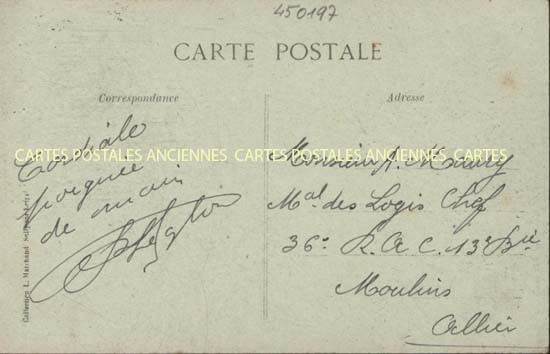 450197
CARTE POSTALE
Correspondance
Adresse
CARTES POSTALES ANCIENNES CARTES POSTALES ANCIENNES
Cordiale
poignée
de main
Monsieur A. Maury
Mal des Logis Chef
36e R.A.C. 13e Bie
Moulins
Allier
Collection L. Marchand